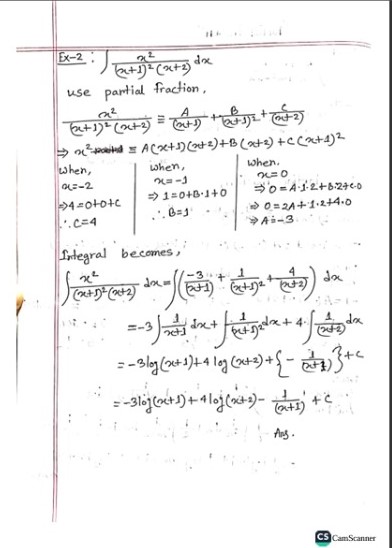 Ex-2 : ∫ x²/((x+1)²(x+2)) dx
use partial fraction,
x²/((x+1)²(x+2)) ≡ A/(x+1) + B/(x+1)² + C/(x+2)
⇒ x² ≡ A(x+1)(x+2)+B(x+2)+C(x+1)²
when,
x=-2
⇒4=0+0+C
∴C=4
when,
x=-1
⇒1=0+B·1+0
∴B=1
when.
x=0
⇒0=A·1·2+B·2+C·0
⇒0=2A+1·2+4·0
⇒A=-3
Integral becomes,
∫ x²/((x+1)²(x+2)) dx = ∫(-3/(x+1) + 1/(x+1)² + 4/(x+2)) dx
= -3∫ 1/(x+1) dx + ∫ 1/(x+1)² dx + 4·∫ 1/(x+2) dx
= -3log(x+1)+4 log(x+2)+{- 1/(x+1)}+C
= -3log(x+1)+4log(x+2) - 1/(x+1) + C
Ans.
CS CamScanner